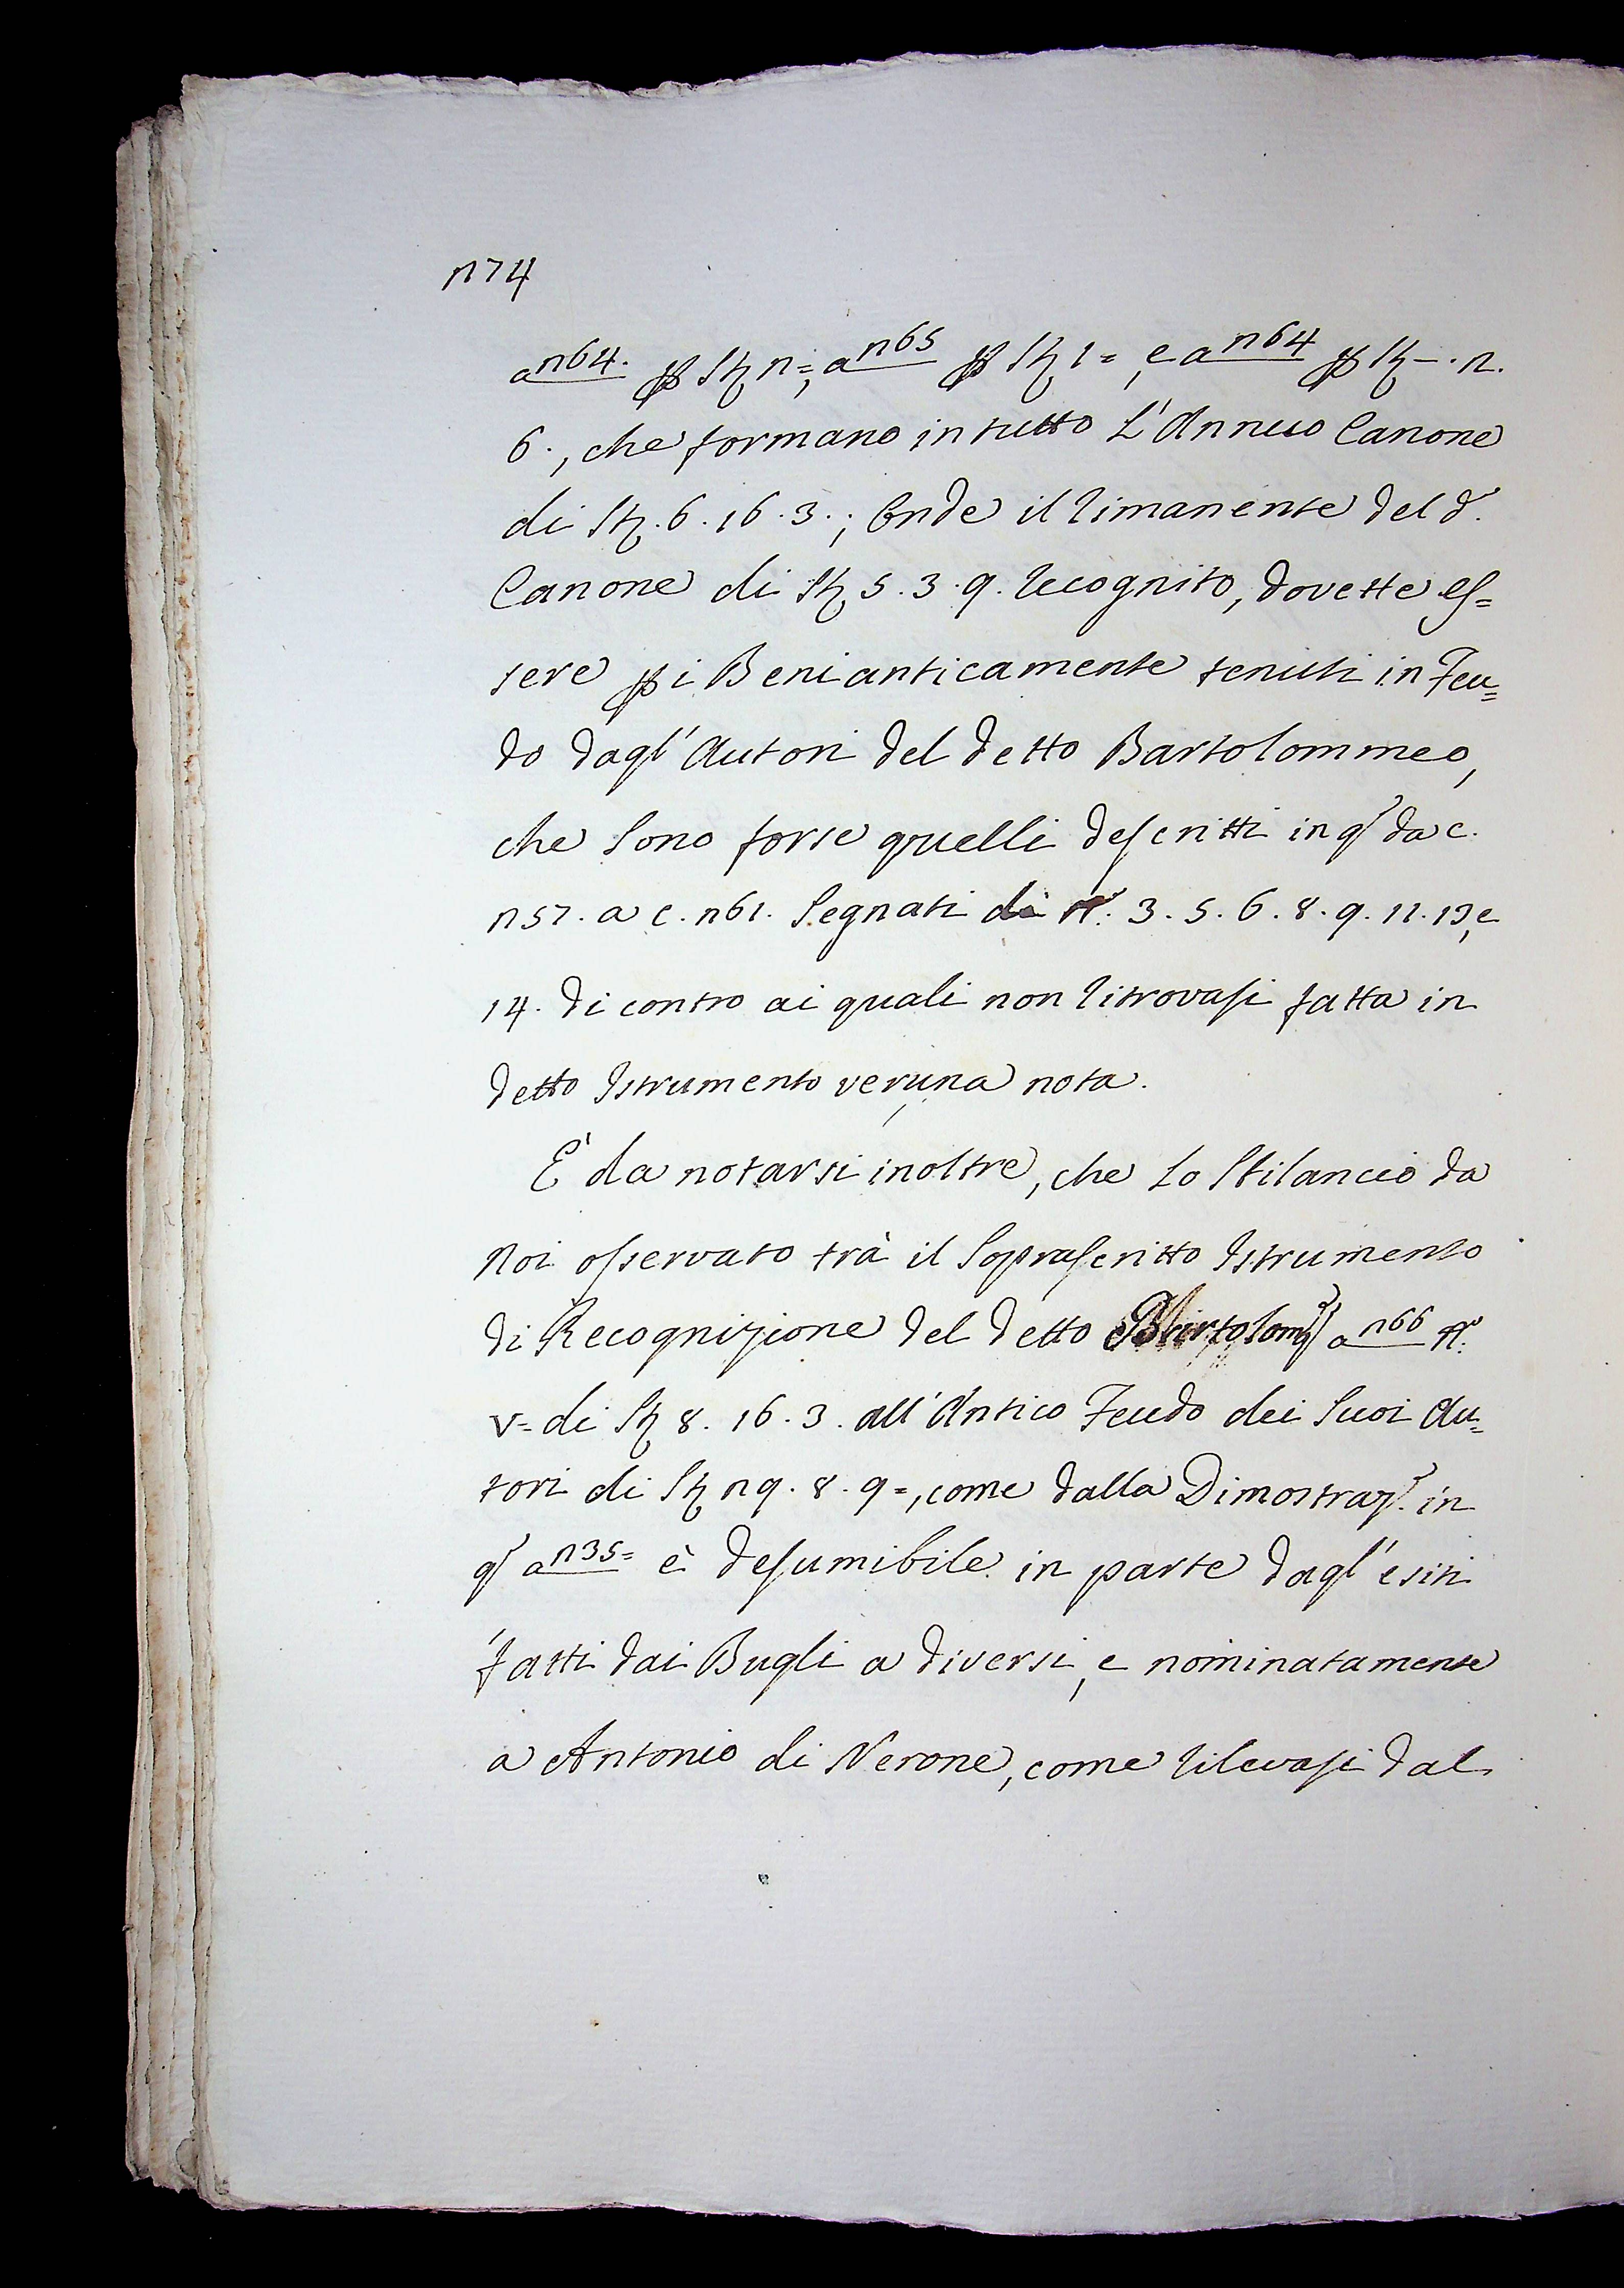 n74
a n64. p Sta n=, a n65 p Sta 1=, e a n64 p Sta -. n.
6., che formano in tutto L'Annuo Canone
di Sta. 6. 16. 3.; Onde il rimanente del d.
Canone di Sta 5. 3. 9. recognito, dovette es=
sere p i Beni anticamente tenuti in Feu=
do dagl'Autori del detto Bartolommeo,
che sono forse quelli descritti in q da c.
n57. a c. n61. Segnati di N. 3. 5. 6. 8. 9. 11. 13, e
14. di contro ai quali non ritrovasi fatta in
detto Istrumento veruna nota.
È da notarsi inoltre, che Lo Sbilancio da
Noi osservato trà il Soprascritto Istrumento
di Recognizione del detto Bartolom a n66 N.
V= di Sta 8. 16. 3. all'Antico Feudo dei Suoi Au=
tori di Sta n9. 8. 9=, come dalla Dimostraz. in
q a n35= è desumibile in parte dagl'esiti
fatti dai Bugli a diversi, e nominatamente
a Antonio di Nerone, come rilevasi dal